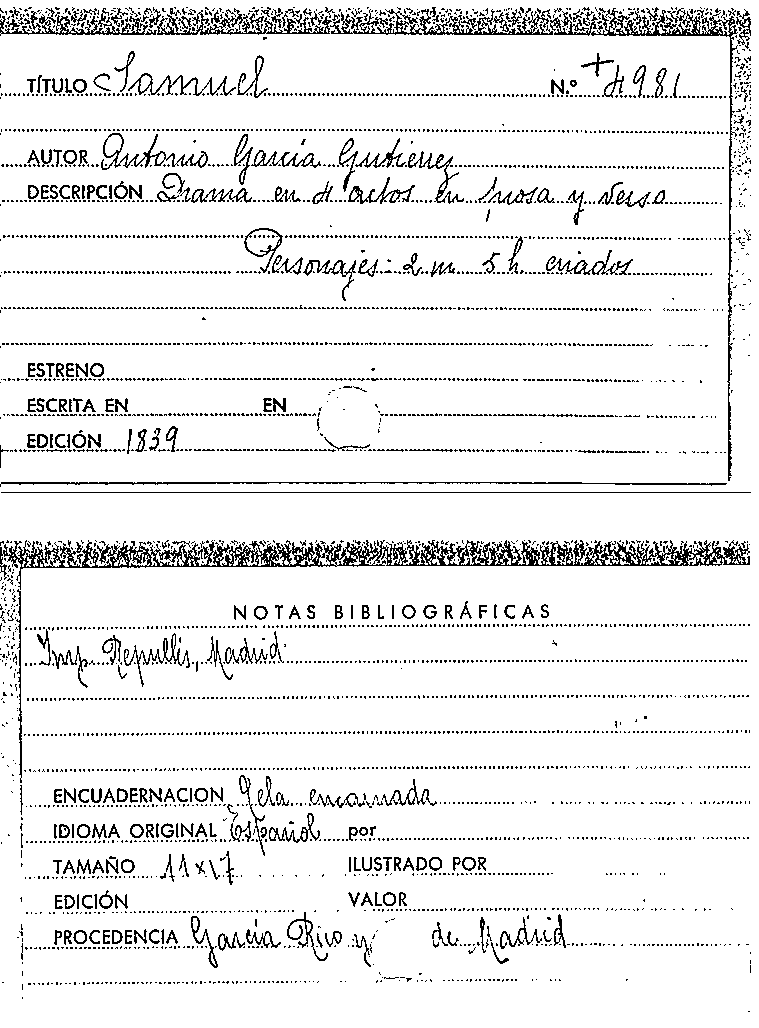 TÍTULO Samuel N.º +4981
AUTOR Antonio García Gutierrez
DESCRIPCIÓN Drama en 4 actos en prosa y verso
Personajes: 2 m 5 h. criados
ESTRENO
ESCRITA EN EN
EDICIÓN 1839
NOTAS BIBLIOGRÁFICAS
Imp. Repullés, Madrid
ENCUADERNACION Tela encarnada
IDIOMA ORIGINAL Español por
TAMAÑO 11x17 ILUSTRADO POR
EDICIÓN VALOR
PROCEDENCIA García Rico y de Madrid